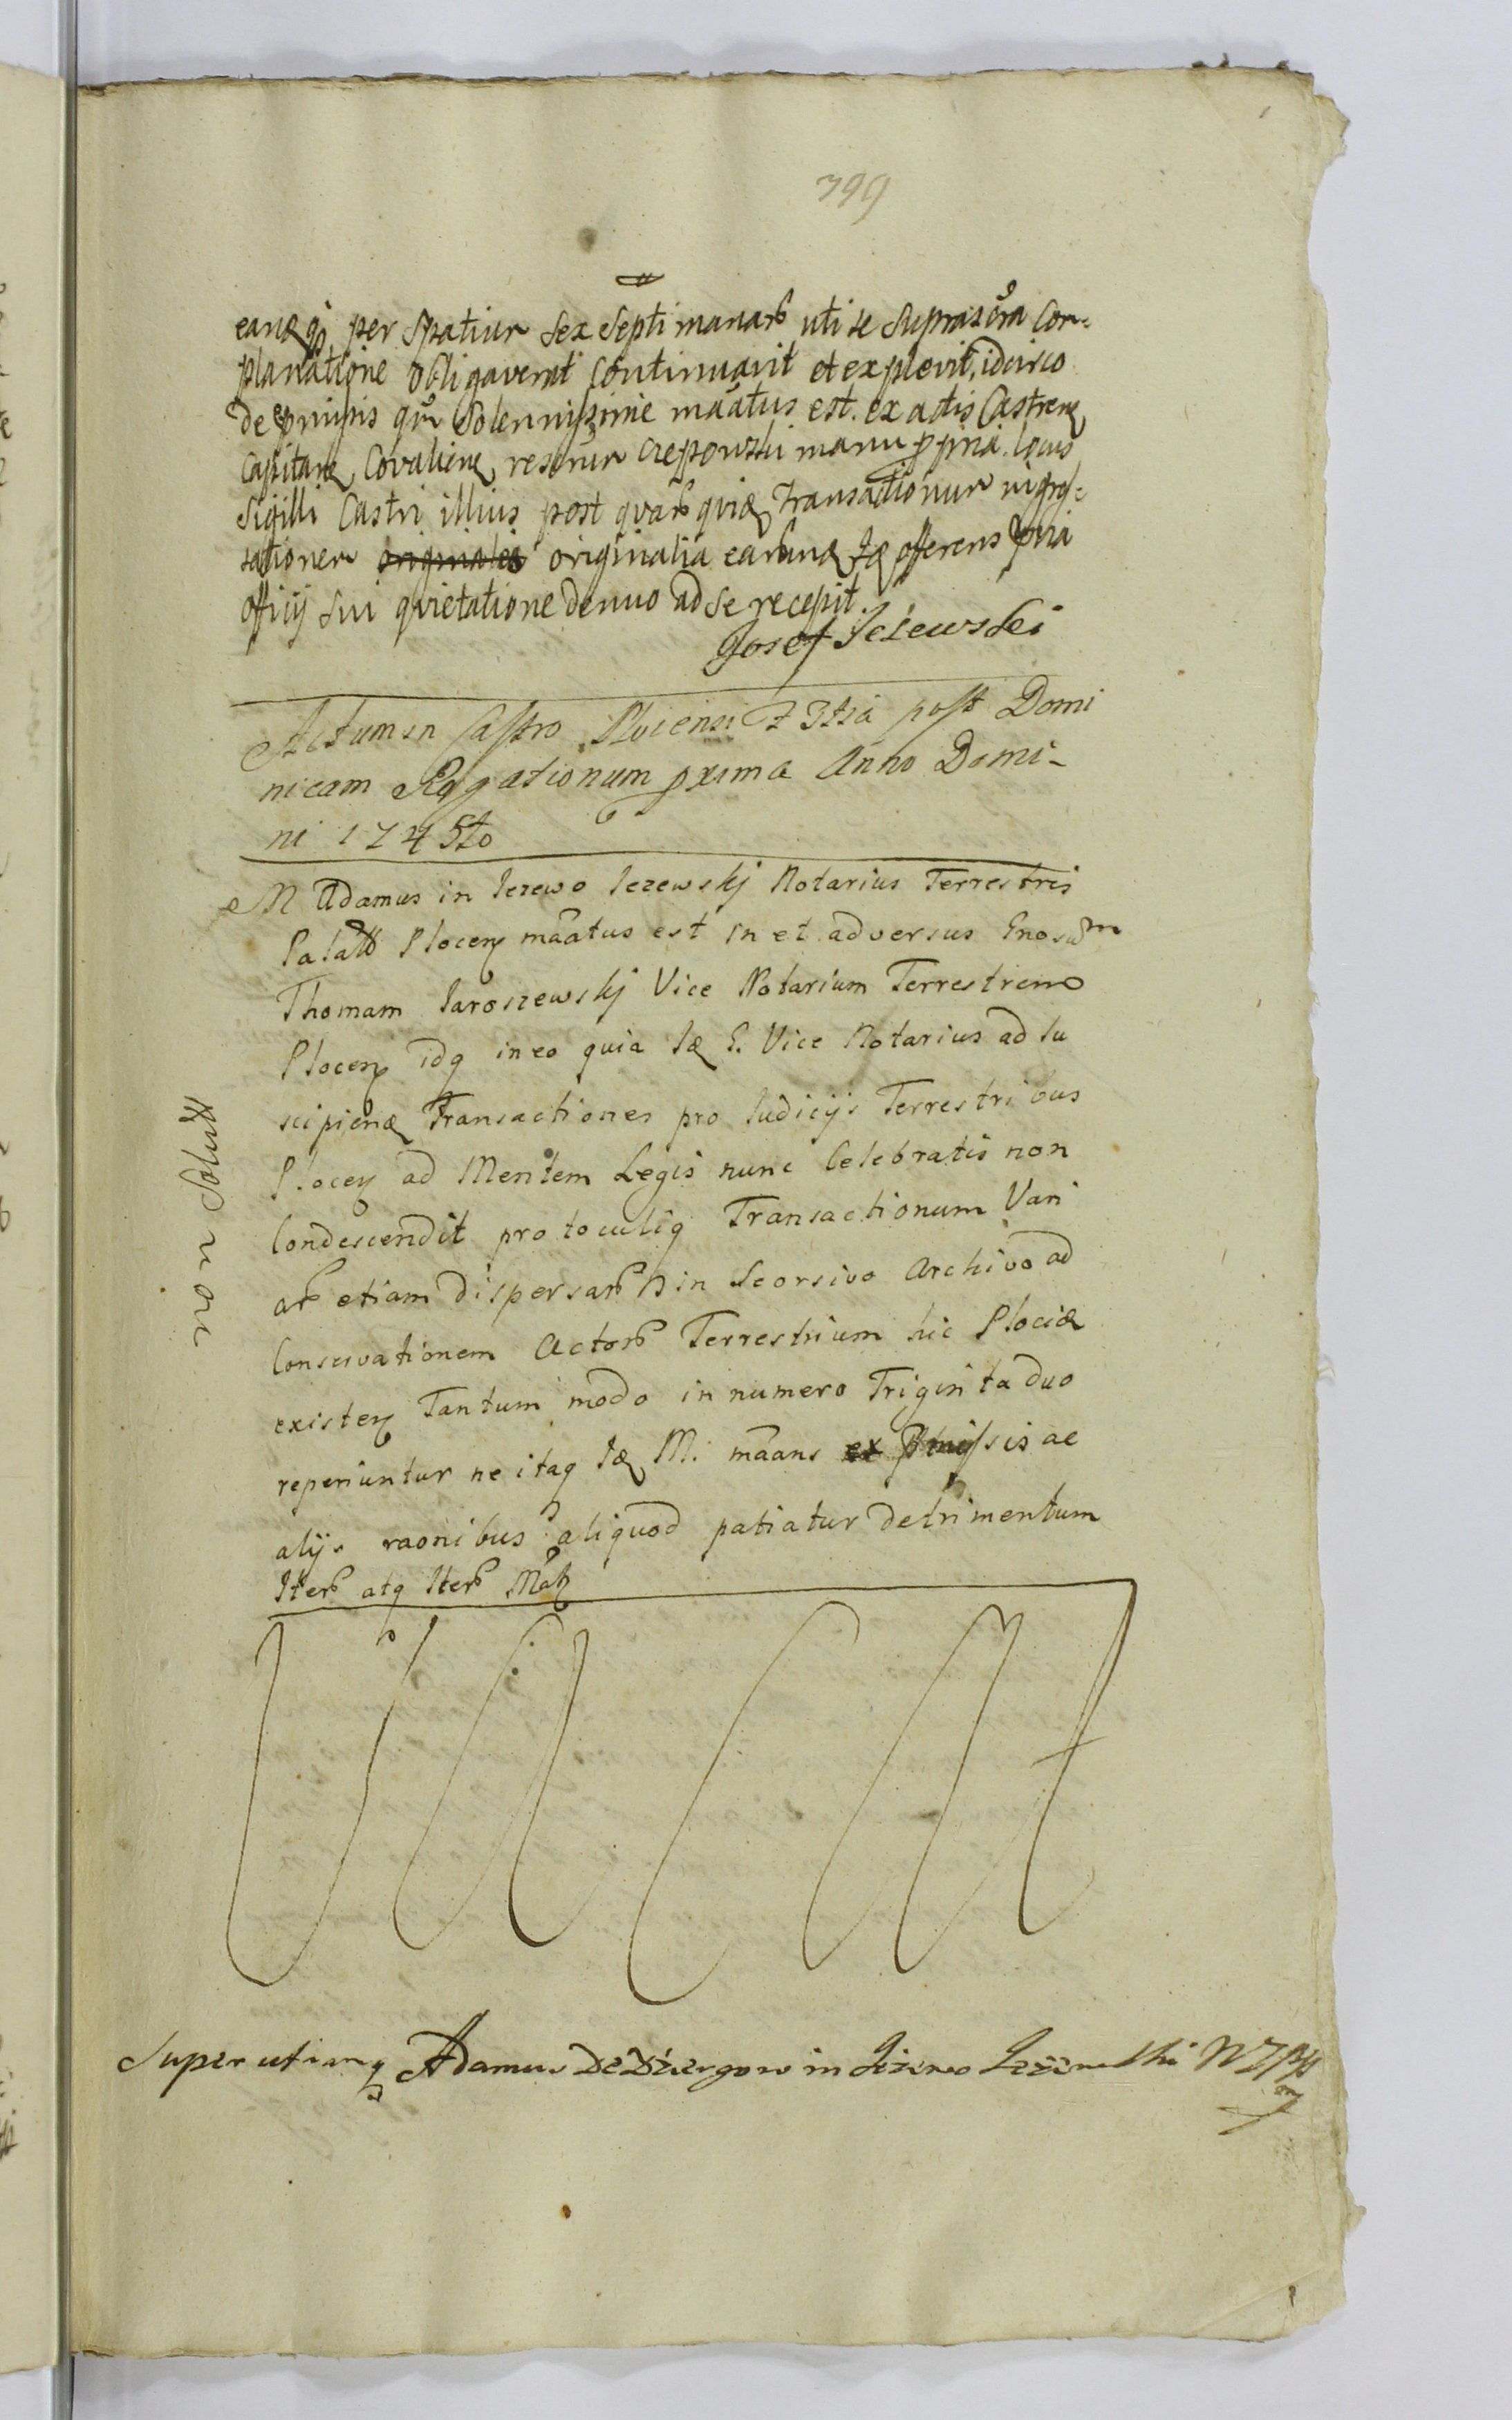 799
eandq per Spatium Sex Septimanarb uti se Suprascra Com=
planatione obligaverat Continuavit et explevit, idcirco
de pmissis qm Solennissime maatus est. ex actis Castren
Capitan Covaliens manu ppria. locus
Sigilli Castri illius post quarb quid Transactionum
sationem originalia originalia earund Id offerens pria
officij Sui quietatione denuo ad se recepit
Josef Jeżewski
Actum in Castro Plocensi f 3tia post Domi
nicam Rogationum pxima Anno Domi-
ni 1745to
M Adamus in Jezewo Jezewskj Notarius Terrestris
Palatt Plocen maatus est in et adversus Gnosum
Thomam Jaroszewskj Vice Notarium Terrestrem
Plocen idq in eo quia Id G. Vice Notarius ad su
scipiend Transactiones pro Judicijs Terrestribus
Plocen ad Mentem Legis nunc Celebratis non
Condescendit protocoliq Transactionum Vari
arb etiam dispersarb in Seorsivo Archivo ad
Conservationem Actorb Terrestrium hic Plociae
existen Tantum modo in numero Triginta duo
reperiuntur ne itaq Id M. maans ex pmissis ac
alijs raonibus aliquod patiatur detrimentum
Iterb atq Iterb Matt
non Solutt
Super Adamus De Dziergowo in Jeżewo Jeżewski